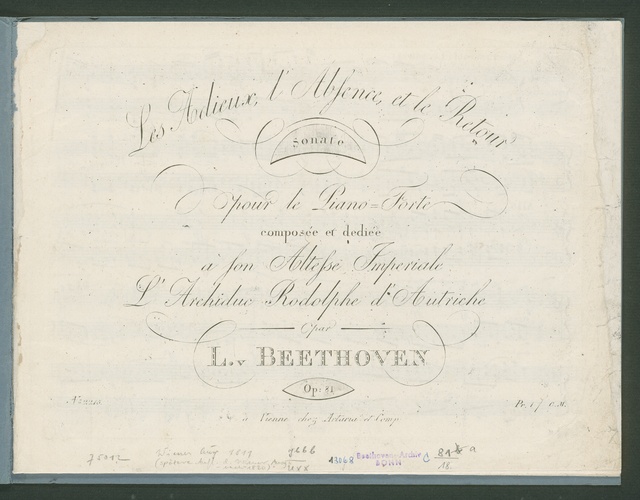 Les Adieux, l'Absence, et le Retour
Sonate
pour le Piano=Forte
composée et dediée
a son Altesse Imperiale
L'Archiduc Rodolphe d'Autriche
par
L. v BEETHOVEN
Op: 81.
à Vienne chez Artaria et Comp.
13068
Beethoven-Archiv
BONN
C
81
a
18.